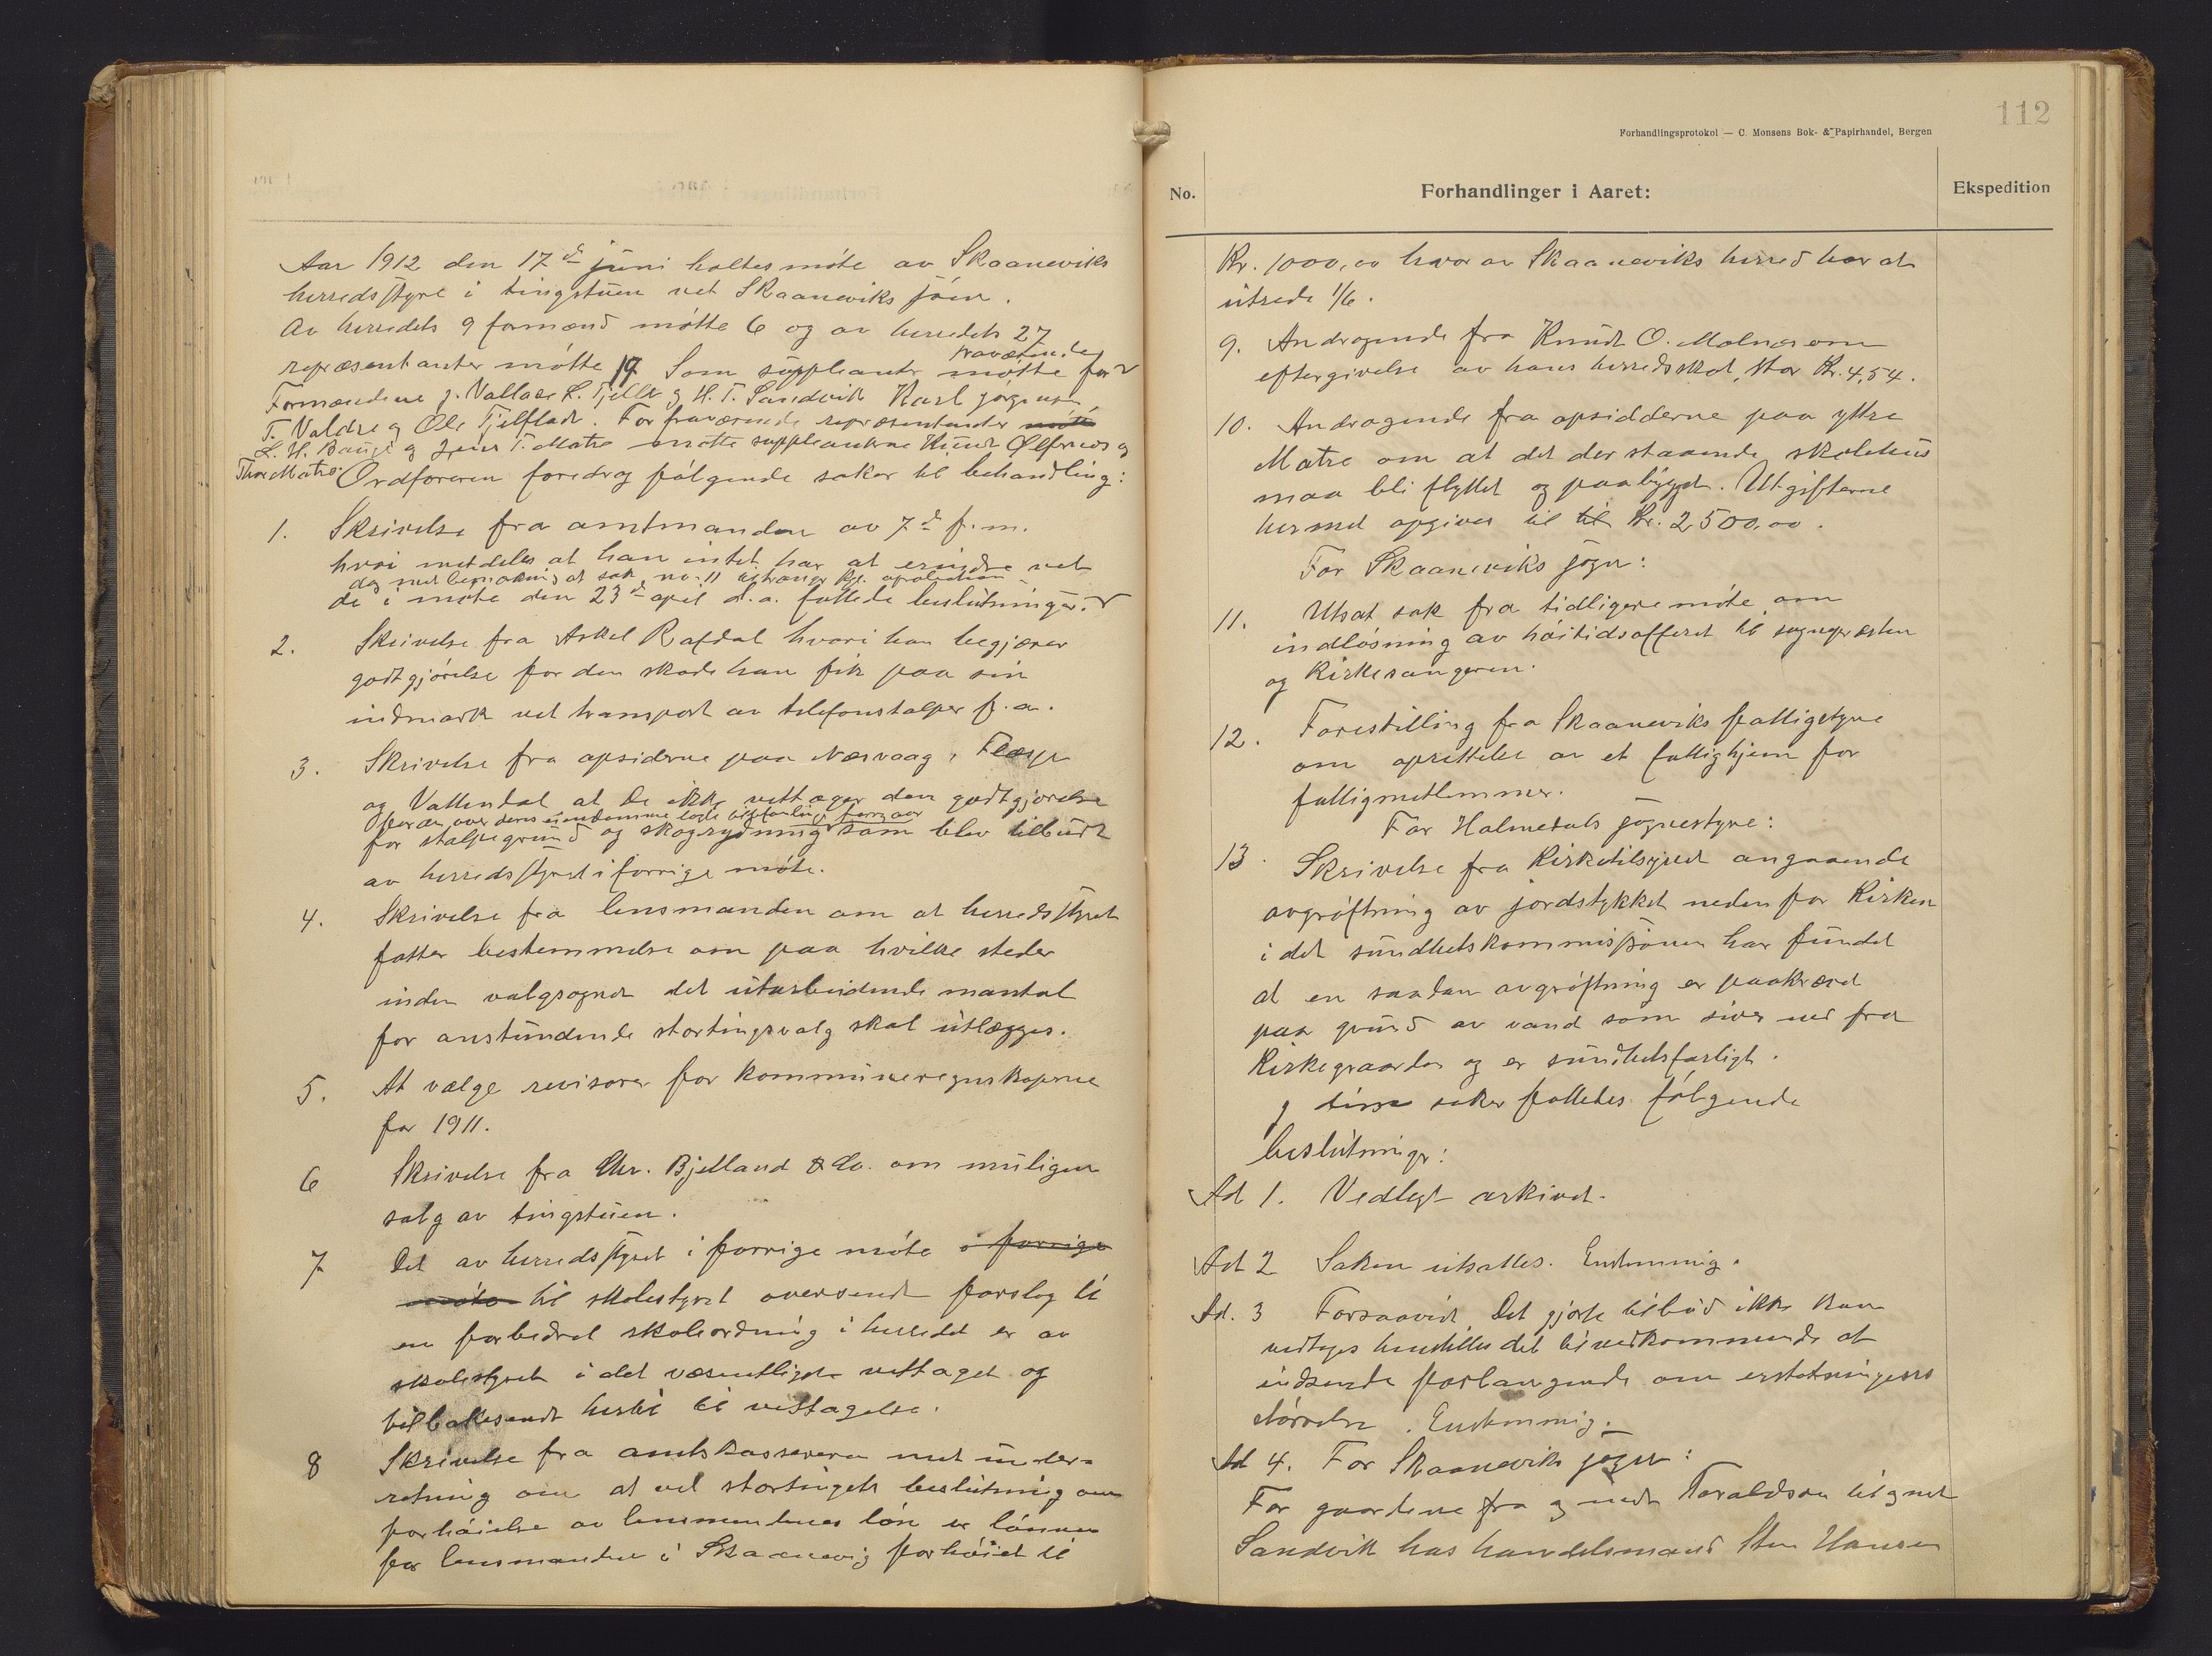 Aar 1912 den 17de juni holtes møte av Skaaneviks
herredsstyre i tingstuen vet Skaaneviks sjøen.
Av herredets 9 formænd møtte 6 og av herredets 27
repræsentanter møtte 19 Som suppleanter møtte for fraværende
Formændene J. Vallaae L. Fjelle og H. T. Sandvik Karl Jørgensen,
T. Valdre og Ole Fjelflaat. For fraværende repræsentanter møtte
L. H. Bauge og Jens T. Matre møtte suppleanterne Knut Ølfernes og
Thore Matre. Ordføreren foredrog følgende saker til behandling:
1. Skrivelse fra amtmanden av 7de f.m.
hvori meddeles at han intet har at erindre vet
dog med bemerkning at sak no. 11 utkræver kgl. aprobation
de i møte den 23de april d.a. fattede beslutninger.
2. Skrivelse fra Askel Rafdal hvori han begjærer
godtgjørelse for den skade han fik paa sin
indmark vet transport av telefonstolper f.a.
3. Skrivelse fra opsiderne paa Næsvaag, Flæsje
og Vattendal at de ikke vettager den godtgjørelse
for den over deres eiendomme lagte telefonlinje forrige aar
for stolpegrund og skogrydning som blev tilbudt
av herredsstyret i forrige møte.
4. Skrivelse fra lensmanden om at herredsstyret
fatter bestemmelse om paa hvilke steder
inden valgsognet det utarbeidende mantal
for anstundende stortingsvalg skal utlægges.
5. At vælge revisorer for kommuneregnskaperne
for 1911.
6 Skrivelse fra Chr. Bjelland & Co. om muligen
salg av tingstuen.
7 Det av herredsstyret i forrige møte i forrige
møte til skolestyret oversendt forslag til
en forbedret skoleordning i herredet er av
skolestyret i det væsentligste vettaget og
tilbakesendt hertil til vettagelse.
8 Skrivelse fra amtskassereren met under-
retning om at vel stortingets beslutning om
forhøielse av lensmændenes løn er lønnen
for lensmanden i Skaanevig forhøiet til
112
Forhandlingsprotokol — C. Monsens Bok- & Papirhandel, Bergen
No.
Forhandlinger i Aaret:
Ekspedition
Kr. 1000,00 hvorav Skaaneviks herred har at
utrede 1/6.
9. Andragende fra Knut O. Molnes om
eftergivelse av hans herredsskat, stor Kr. 4,54.
10. Andragende fra opsidderne paa ytre
Matre om at det der staaende skolehus
maa bli flyttet og paabygd. Utgifterne
hermed opgives til til Kr. 2500,00.
For Skaaneviks sogn:
11. Utsat sak fra tidligere møte om
indløsning av høitidsofferet til sognepræsten
og Kirkesangeren.
12. Forestilling fra Skaaneviks fattigstyre
om oprettelse av et fattighjem for
fattigmetlemmer.
For Holmedals sognestyre:
13. Skrivelse fra Kirketilsynet angaaende
avgrøftning av jordstykket neden for Kirken
i det sundhetskommissionen har fundet
at en saadan avgrøftning er paakrævd
paa grund av vand som siver ned fra
Kirkegaarden og er sundhetsfarligt.
I disse saker fattedes følgende
beslutninger:
Ad 1. Vedlegt arkivet.
Ad 2 Saken utsattes. Enstemmig.
Ad. 3 Forsaavidt det gjorte tilbud ikke kan
vedtages henstilles det til vedkommende at
indsende forlangende om erstatningens
størrelse. Enstemmig.
Ad 4. For Skaaneviks sogn:
For gaardene fra og med Toraldson til og med
Sandvik hos handelsmand Sten Hansen